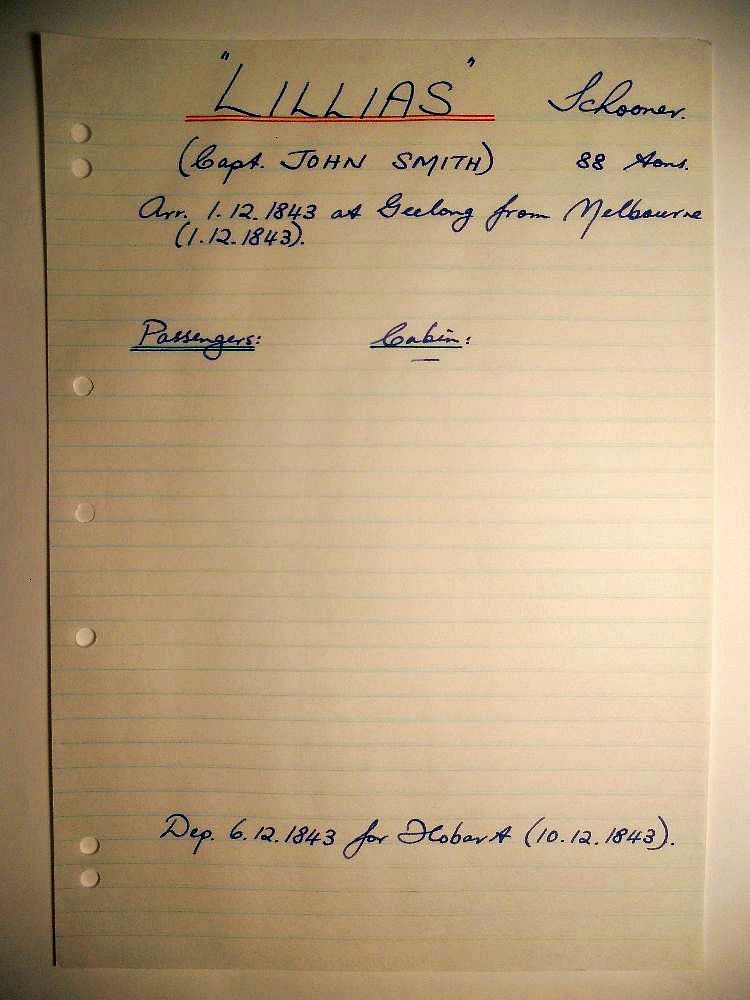 "LILLIAS" Schooner.
(Capt. JOHN SMITH) 88 tons.
Arr. 1.12.1843 at Geelong from Melbourne
(1.12.1843).
Passengers: Cabin:
—
Dep. 6.12.1843 for Hobart (10.12.1843).